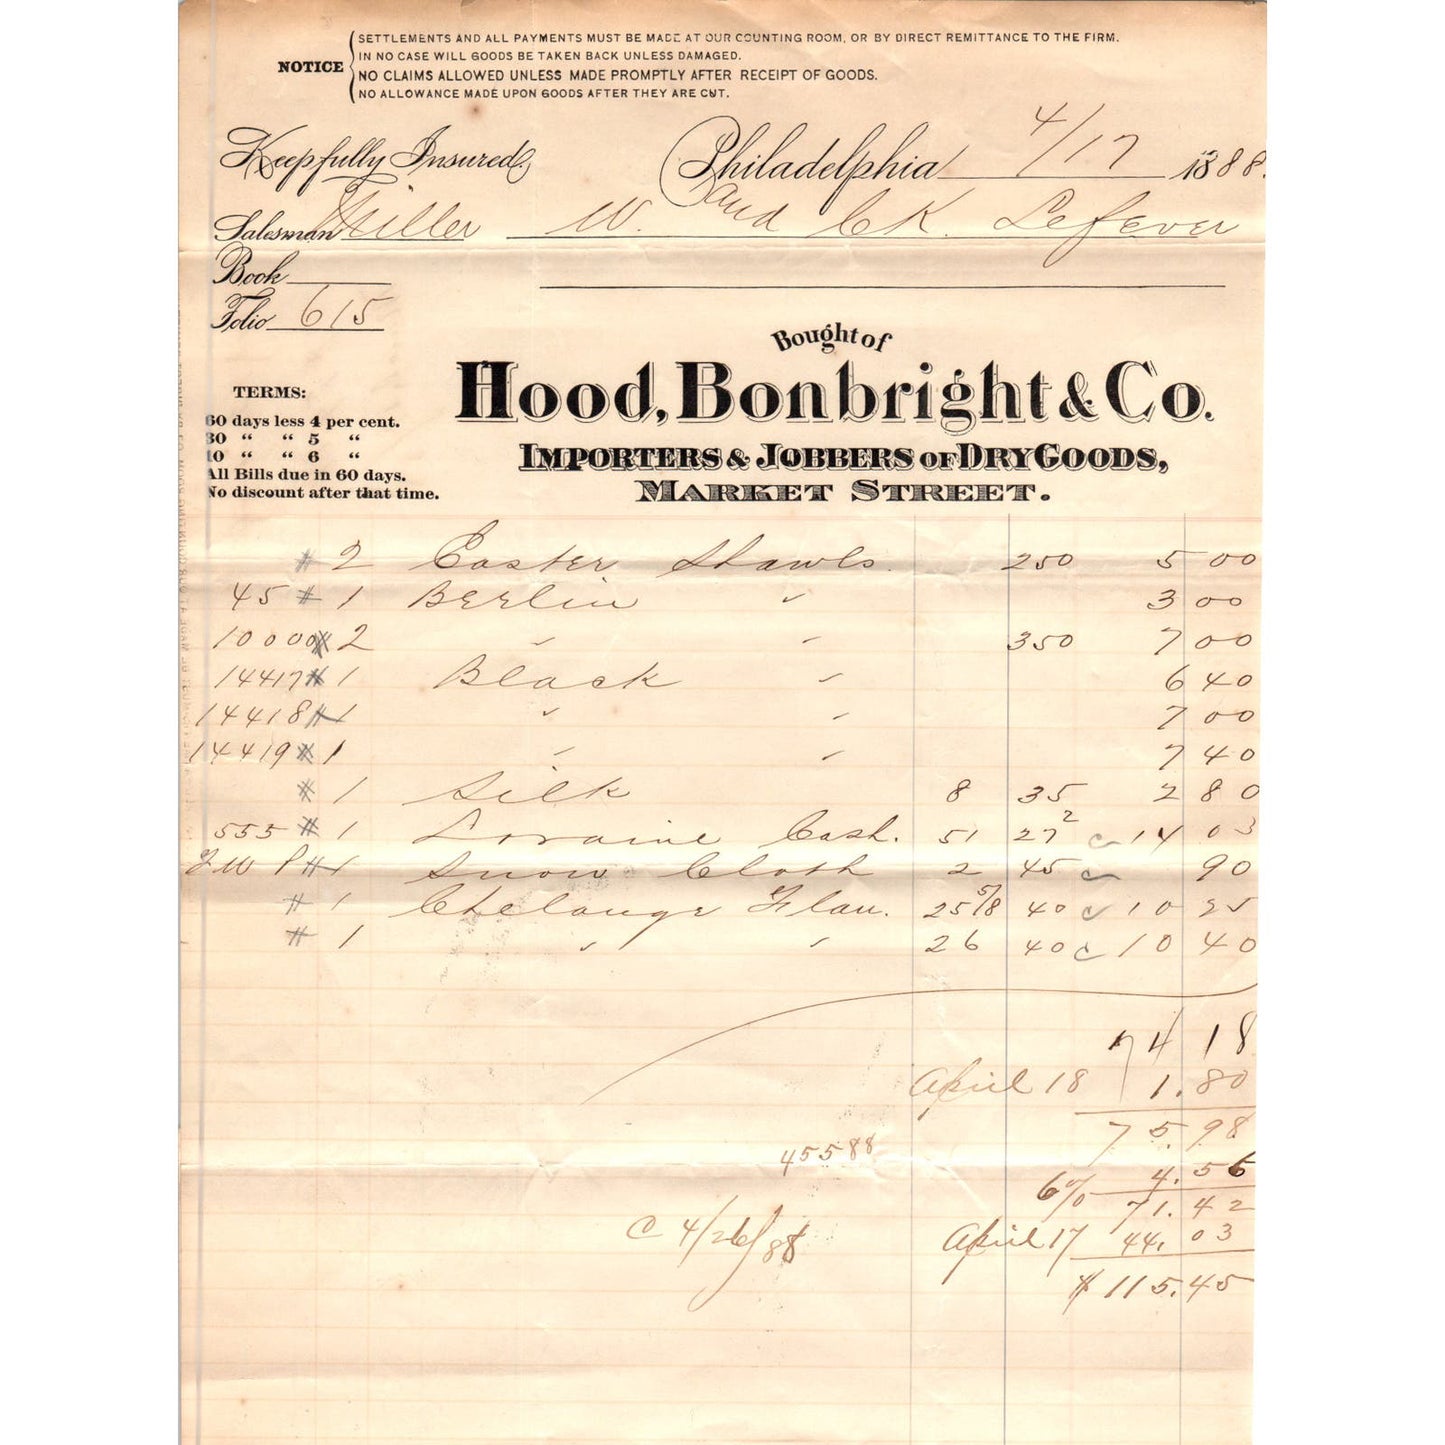 NOTICE
SETTLEMENTS AND ALL PAYMENTS MUST BE MADE AT OUR COUNTING ROOM, OR BY DIRECT REMITTANCE TO THE FIRM.
IN NO CASE WILL GOODS BE TAKEN BACK UNLESS DAMAGED.
NO CLAIMS ALLOWED UNLESS MADE PROMPTLY AFTER RECEIPT OF GOODS.
NO ALLOWANCE MADE UPON GOODS AFTER THEY ARE CUT.
Keep fully Insured. Philadelphia 4/17 1888.
Salesman Filler W. and CK. Lefever
Book
Folio 615
Bought of
Hood, Bonbright & Co.
IMPORTERS & JOBBERS OF DRY GOODS,
MARKET STREET.
TERMS:
60 days less 4 per cent.
30 “ “ 5 “
10 “ “ 6 “
All Bills due in 60 days.
No discount after that time.
# 2 Easter Shawls. 250 5 00
45 # 1 Berlin " 3 00
10000 # 2 " " 350 7 00
14417 # 1 Black " 6 40
14418 # 1 " " 7 00
14419 # 1 " " 7 40
# 1 Silk 8 35 2 80
555 # 1 Lorraine Cash. 51 27 2 c 14 03
# 1 Snow Cloth 2 45 c 90
# 1 Flan. 25 5/8 40 c 10 25
# 1 " " 26 40 c 10 40
74 18
April 18 1.80
75.98
45588 4.56
6% 71.42
C 4/26/88 April 17 44.03
$115.45